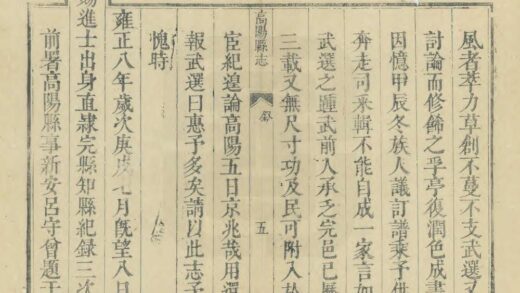 風者萃力草創不蔓不支武選
討論而修飾之乎亭復潤色成書
因憶甲辰冬族人議訂譜乘予併
奔走司采輯不能自成一家言如
武選之踵武前人承乏完邑已歷
三載又無尺寸功及民可附入於
高陽縣志 敘 五
宦紀遑論高陽五日京兆哉用還
報武選曰惠予多矣請以此志予
愧時
雍正八年歲次庚戌七月既望八日
賜進士出身直隸完縣知縣紀録三次
前署高陽縣事新安呂守曾題于